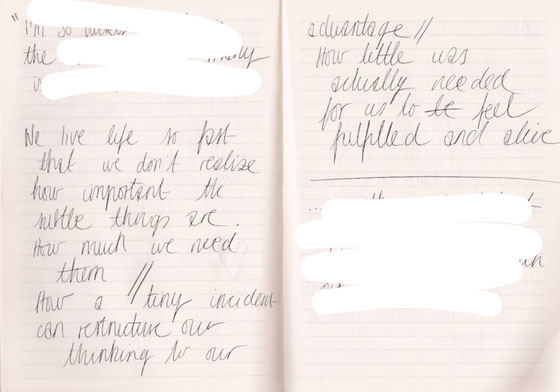 "
I'm so
the
We live life so fast
that we don't realize
how important the
subtle things are.
How much we need
them //
How a // tiny incident
can restructure our
thinking to our
advantage //
How little was
actually needed
for us to be feel
fulfilled and alive
...